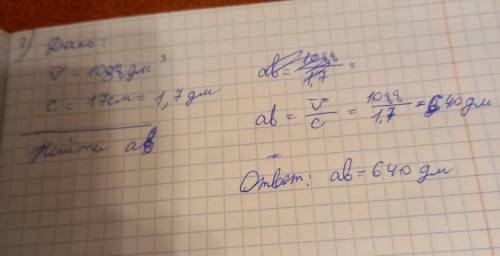 2) Дано:
V = 1088 дм³
c = 17 см = 1,7 дм
Найти ab
ab = 1088/1,7 =
ab = V/c = 1088/1,7 = 640 дм
=
Ответ: ab = 640 дм